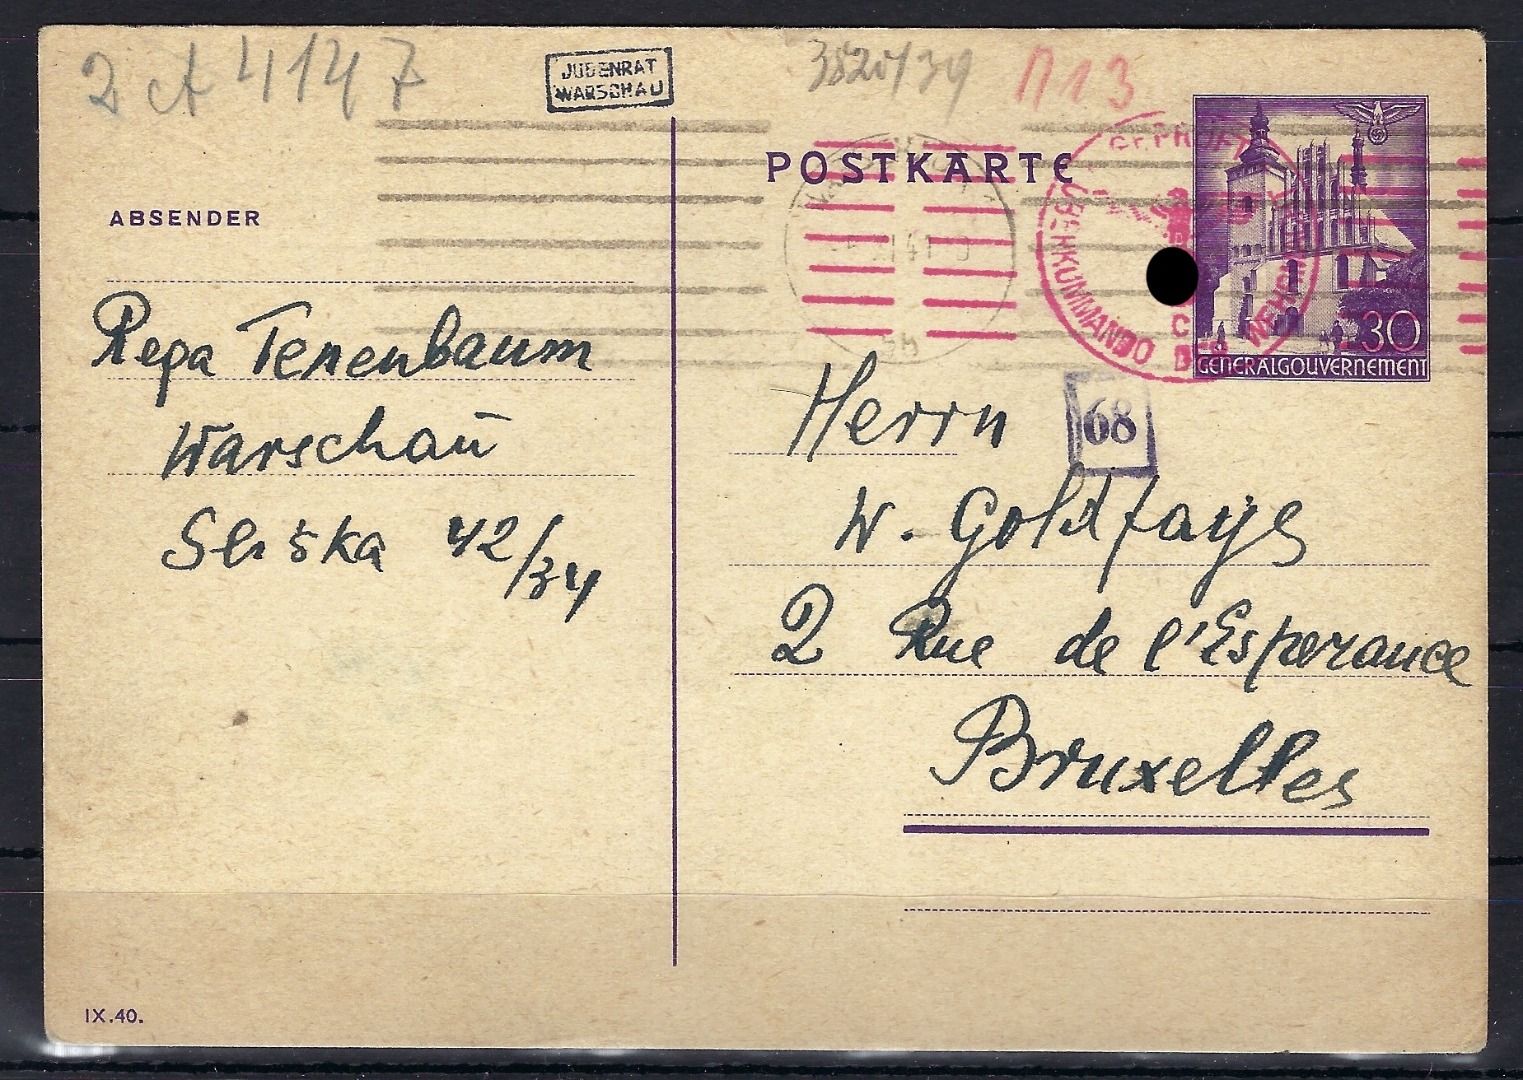 2 ct 4147
JUDENRAT
WARSCHAU
N13
POSTKARTE
GEPRÜFT
OBERKOMMANDO DER WEHRM
30
GENERALGOUVERNEMENT
68
ABSENDER
Rega Tenenbaum
Warschau
Sliska 42/34
Herrn
W. Goldfajs
2 Rue de l'Esperance
Bruxelles
IX.40.